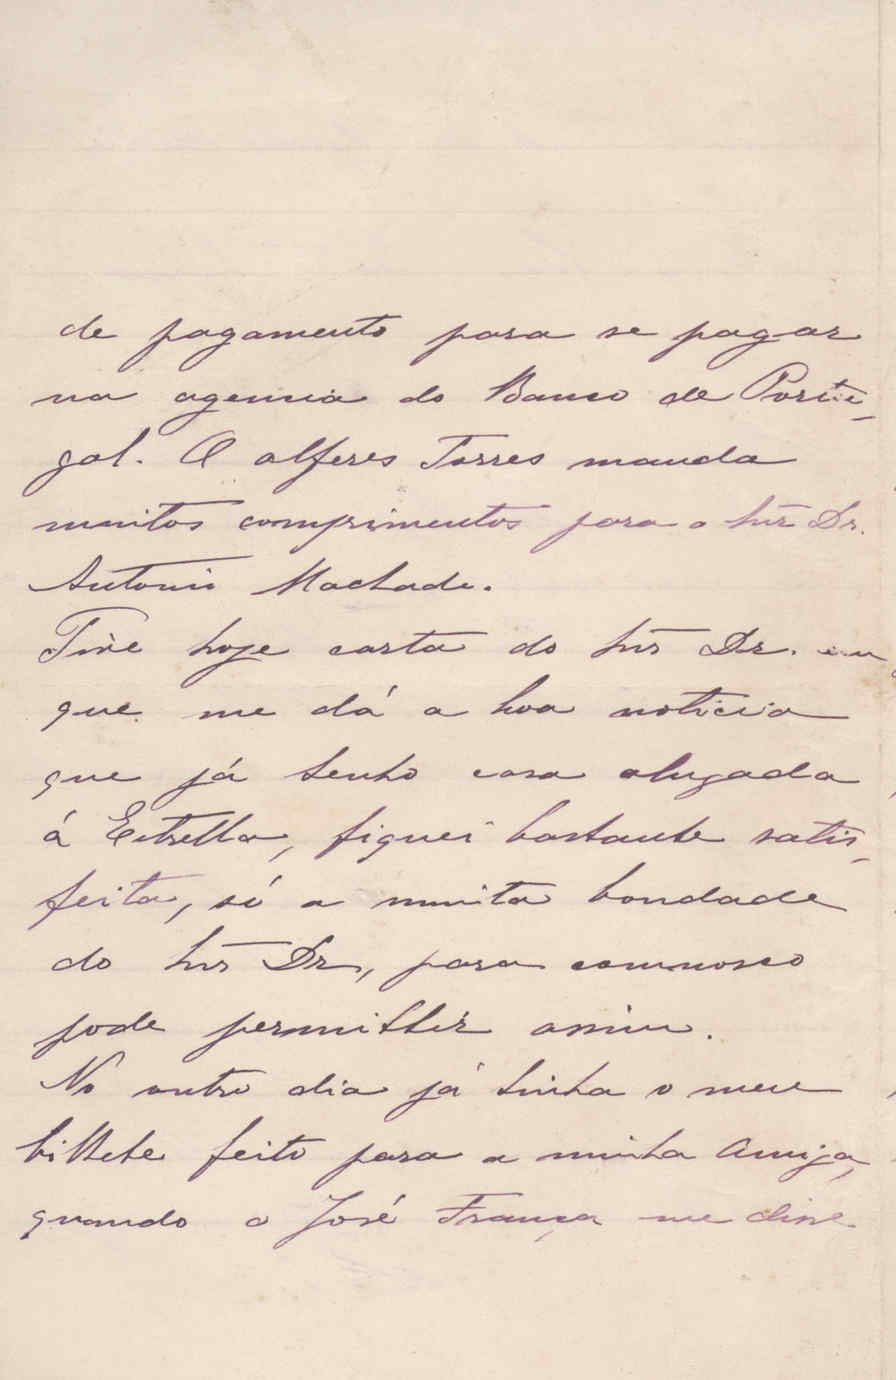 de pagamento para se pagar
na agencia do Banco de Portu-
gal. O alferes Torres manda
muitos comprimentos para o Snr Dr.
Antonio Machado.
Tive hoje carta do Snr Dr. em
que me dá a boa noticia
que já tenho casa alugada
á Estrella, fiquei bastante satis-
feita, só a muita bondade
do Snr Dr, para comnosco
pode permittir assim.
No outro dia já tinha o meu
bilhete feito para a minha Amiga,
quando o José França me disse